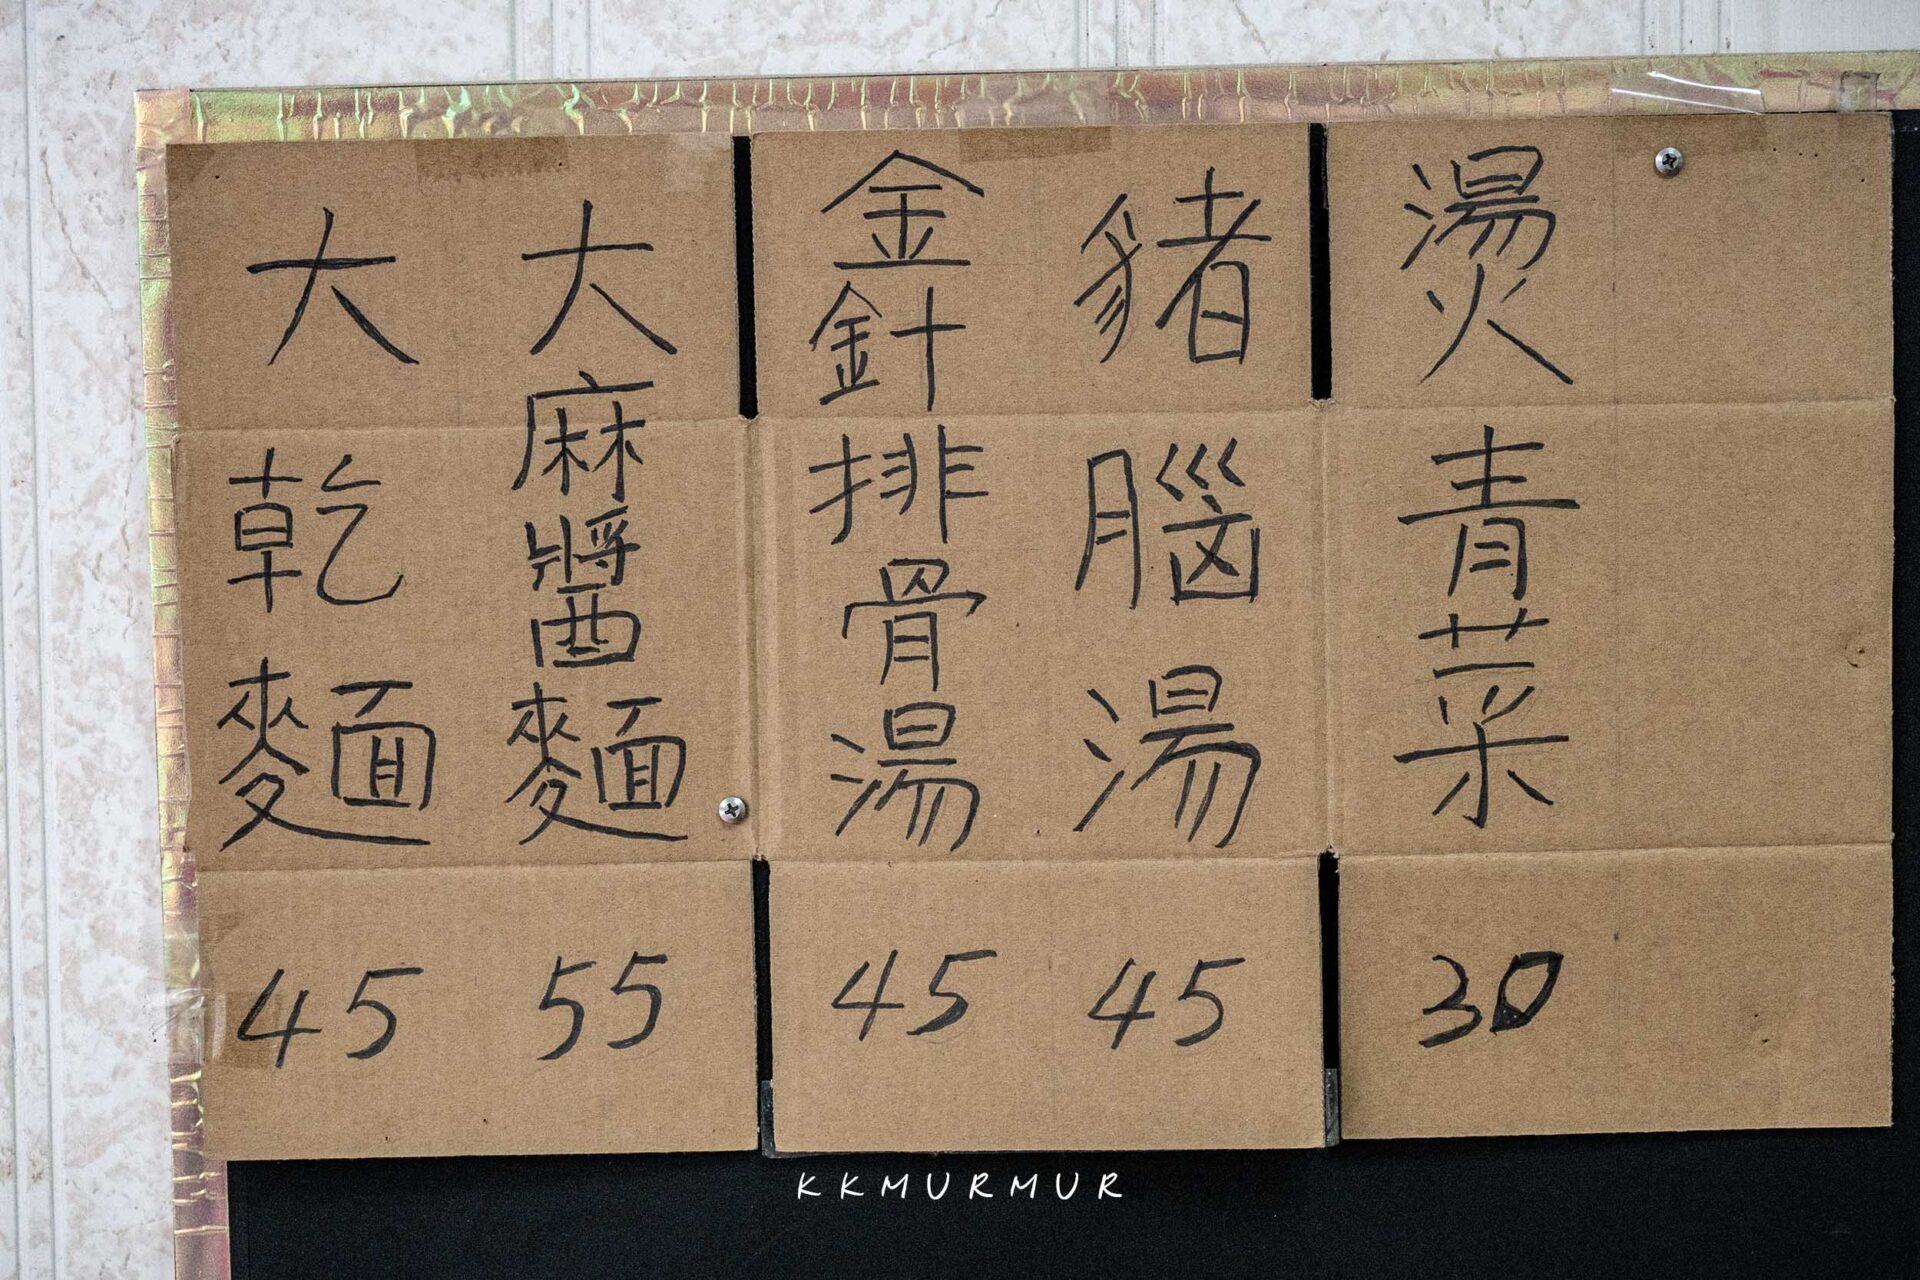 大乾麵
45
大麻醬麵
55
金針排骨湯
45
豬腦湯
45
燙青菜
30
KKMURMUR